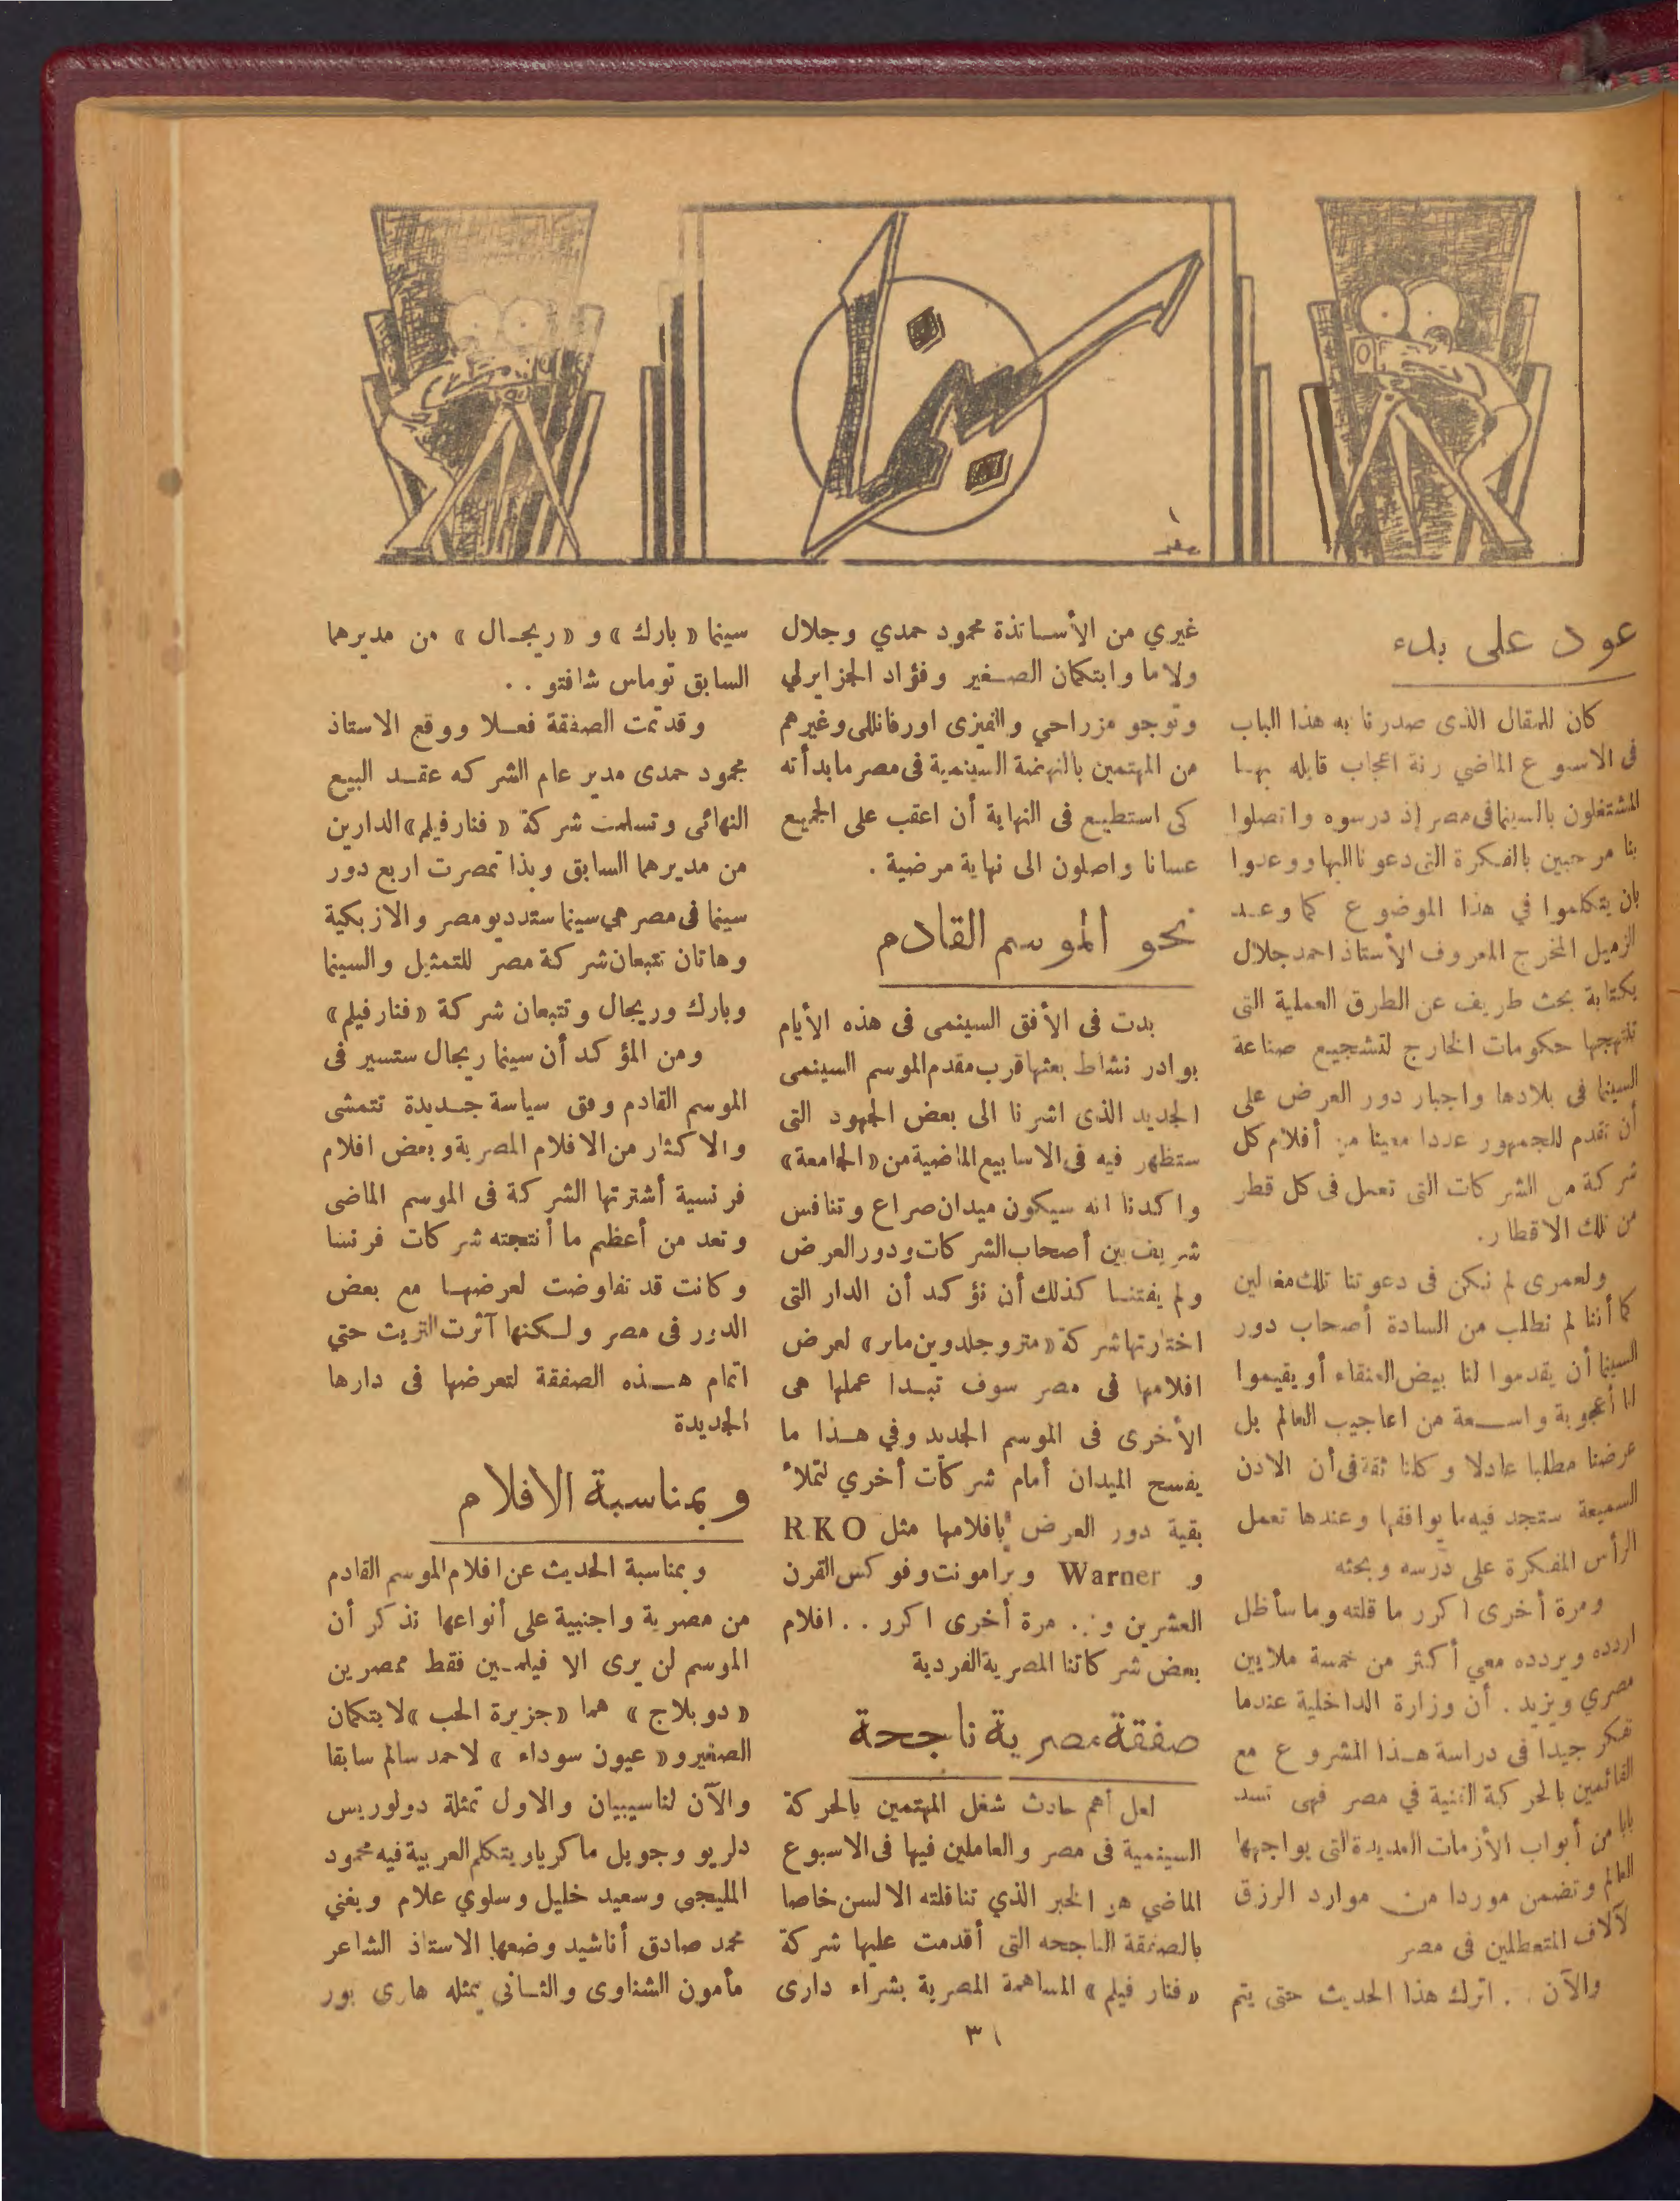 السينما
عود على بدء
كان للمقال الذى صدرنا به هذا الباب
فى الاسبوع الماضي رنة اعجاب قابله بهـا
المشتغلون بالسينما فى مصر إذ درسوه واتصلوا
بنا مرحبين بالفكرة التى دعونا اليها ووعدوا
بان يتكلموا في هذا الموضوع كما وعـد
الزميل المخرج المعروف الأستاذ احمد جلال
بكتابة بحث طريف عن الطرق العملية التى
تنتهجها حكومات الخارج لتشجيع صناعة
السينما فى بلادها واجبار دور العرض على
أن تقدم للجمهور عددا معينا من أفلام كل
شركة من الشركات التى تعمل فى كل قطر
من تلك الاقطار.
ولعمرى لم نكن فى دعوتنا تلك مغالين
كما أننا لم نطلب من السادة أصحاب دور
السينما أن يقدموا لنا بيض العنقاء أو يقيموا
لنا أعجوبة واســعة من اعاجيب العالم بل
عرضنا مطلبا عادلا وكلنا ثقة فى أن الاذن
السميعة ستجد فيه ما يوافقها وعندها تعمل
الرأس المفكرة على درسه وبحثه
ومرة أخرى اكرر ما قلته وما سأظل
اردده ويردده معي أكثر من خمسة ملايين
مصري ويزيد. أن وزارة الداخلية عندما
تفكر جيدا فى دراسة هـذا المشروع مع
القائمين بالحركة الفنية في مصر فهى تسد
بابا من أبواب الأزمات العديدة التى يواجهها
العالم وتضمن موردا من موارد الرزق
لآلاف المتعطلين فى مصر
والآن . . اترك هذا الحديث حتى يتم
غيري من الأســاتذة محمود حمدي وجلال
ولاما وابتكمان الصـغير وفؤاد الجزايرلي
وتوجو مزراحي والفيزى اورفانللى وغيرهم
من المهتمين بالنهضة السينمية فى مصر ما بدأته
كى استطيـع فى النهاية أن اعقب على الجميع
عسانا واصلون الى نهاية مرضية .
نحو الموسم القادم
بدت فى الأفق السينمى فى هذه الأيام
بوادر نشاط بعثها قرب مقدم الموسم السينمى
الجديد الذى اشرنا الى بعض الجهود التى
ستظهر فيه فى الاسابيع الماضية من «الجامعة»
واكدنا انه سيكون ميدان صراع وتنافس
شريف بين أصحاب الشركات ودور العرض
ولم يفتنـا كذلك أن نؤكد أن الدار التى
اختارتها شركة «متروجلدوين ماير» لعرض
افلامها فى مصر سوف تبـدا عملها هى
الأخرى فى الموسم الجديد وفي هـذا ما
يفسح الميدان أمام شركات أخري لتملأ
بقية دور العرض بافلامها مثل RKO
و Warner وبرامونت وفوكس القرن
العشرين و.. مرة أخرى اكرر . . افلام
بعض شركاتنا المصرية الفردية
صفقة مصرية ناجحة
لعل أهم حادث شغل المهتمين بالحركة
السينمية فى مصر والعاملين فيها فى الاسبوع
الماضي هو الخبر الذي تناقلته الالسن خاصا
بالصفقة الناجحه التى أقدمت عليها شركة
«فنار فيلم» المساهمة المصرية بشراء دارى
سينما «بارك» و «ريجـال» من مديرهما
السابق توماس شافتو . .
وقد تمت الصفقة فعـلا ووقع الاستاذ
محمود حمدى مدير عام الشركه عقـد البيع
النهائى وتسلمت شركة «فنار فيلم» الدارين
من مديرهما السابق وبذا تمصرت اربع دور
سينما فى مصر هى سينما ستديو مصر والازبكية
وهاتان تتبعان شركة مصر للتمثيل والسينما
وبارك وريجال وتتبعان شركة «فنار فيلم»
ومن المؤكد أن سينما ريجال ستسير فى
الموسم القادم وفق سياسة جـديدة تتمشى
والاكثار من الافلام المصرية وبعض افلام
فرنسية أشترتها الشركة فى الموسم الماضى
وتعد من أعظم ما أنتجته شركات فرنسا
وكانت قد تفاوضت لعرضهـا مع بعض
الدور فى مصر ولـكنها آثرت التريث حتي
اتمام هــذه الصفقة لتعرضها فى دارها
الجديدة
وبمناسبة الافلام
وبمناسبة الحديث عن افلام الموسم القادم
من مصرية واجنبية على أنواعها نذكر أن
الموسم لن يرى الا فيلمـين فقط ممصرين
«دوبلاج» هما «جزيرة الحب» لابتكمان
الصغير و«عيون سوداء» لاحمد سالم سابقا
والآن لناسيبيان والاول تمثلة دولوريس
دلريو وجويل ماكريا ريتكلم العربية فيه محمود
المليجى وسعيد خليل وسلوي علام ويغني
محمد صادق أناشيد وضعها الاستاذ الشاعر
مأمون الشناوى والثـانى يمثله هارى بور
٣١